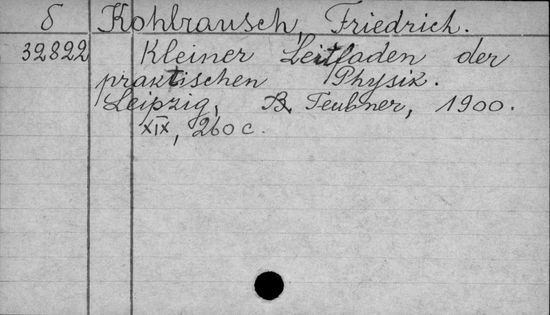 δ Kohlrausch, Friedrich.
32822 Kleiner Leitfaden der
praktischen Physik.
Leipzig, B. Teubner, 1900.
XIX, 260 c.